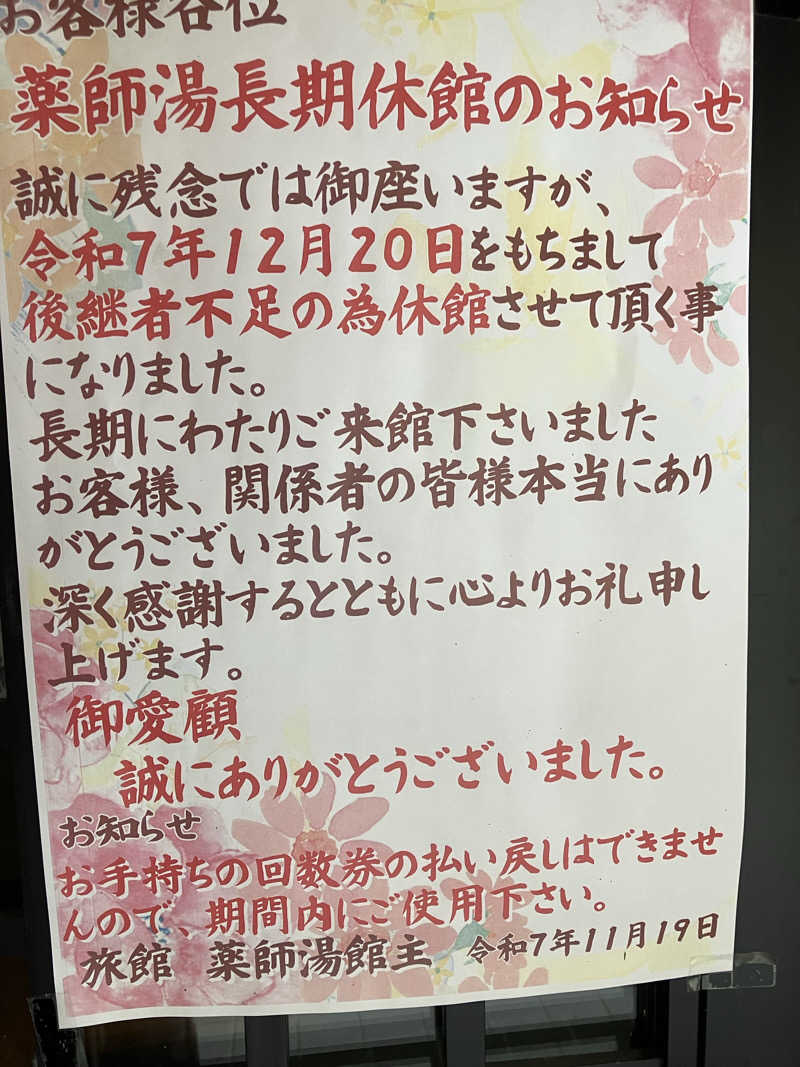 お客様各位
薬師湯長期休館のお知らせ
誠に残念では御座いますが、
令和7年12月20日をもちまして
後継者不足の為休館させて頂く事
になりました。
長期にわたりご来館下さいました
お客様、関係者の皆様本当にあり
がとうございました。
深く感謝するとともに心よりお礼申し
上げます。
御愛顧
誠にありがとうございました。
お知らせ
お手持ちの回数券の払い戻しはできませ
んので、期間内にご使用下さい。
旅館　薬師湯館主　令和7年11月19日